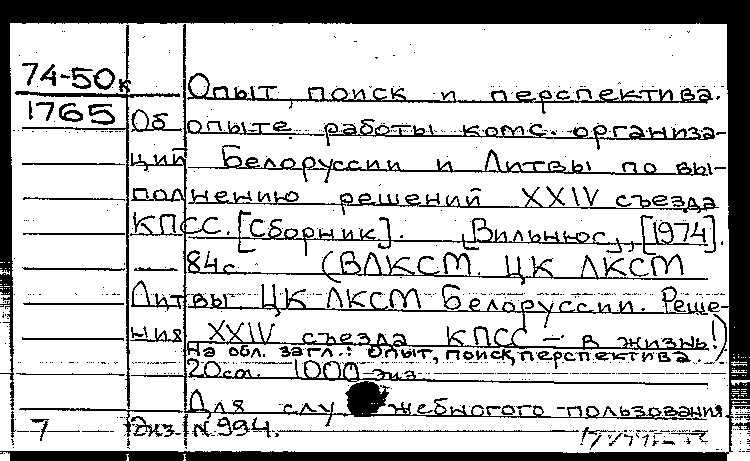 74-50к Опыт, поиск и перспектива.
1765 Об опыте работы комс. организа-
ций Белоруссии и Литвы по вы-
полнению решений XXIV съезда
КПСС. [Сборник]. [Вильнюс], [1974].
— 84с. (ВЛКСМ. ЦК ЛКСМ
Литвы. ЦК ЛКСМ Белоруссии. Реше-
ния XXIV съезда КПСС — в жизнь!)
На обл. загл.: Опыт, поиск, перспектива.
20см. 1000 экз.
Для служебного пользования.
7 Экз. N 994.